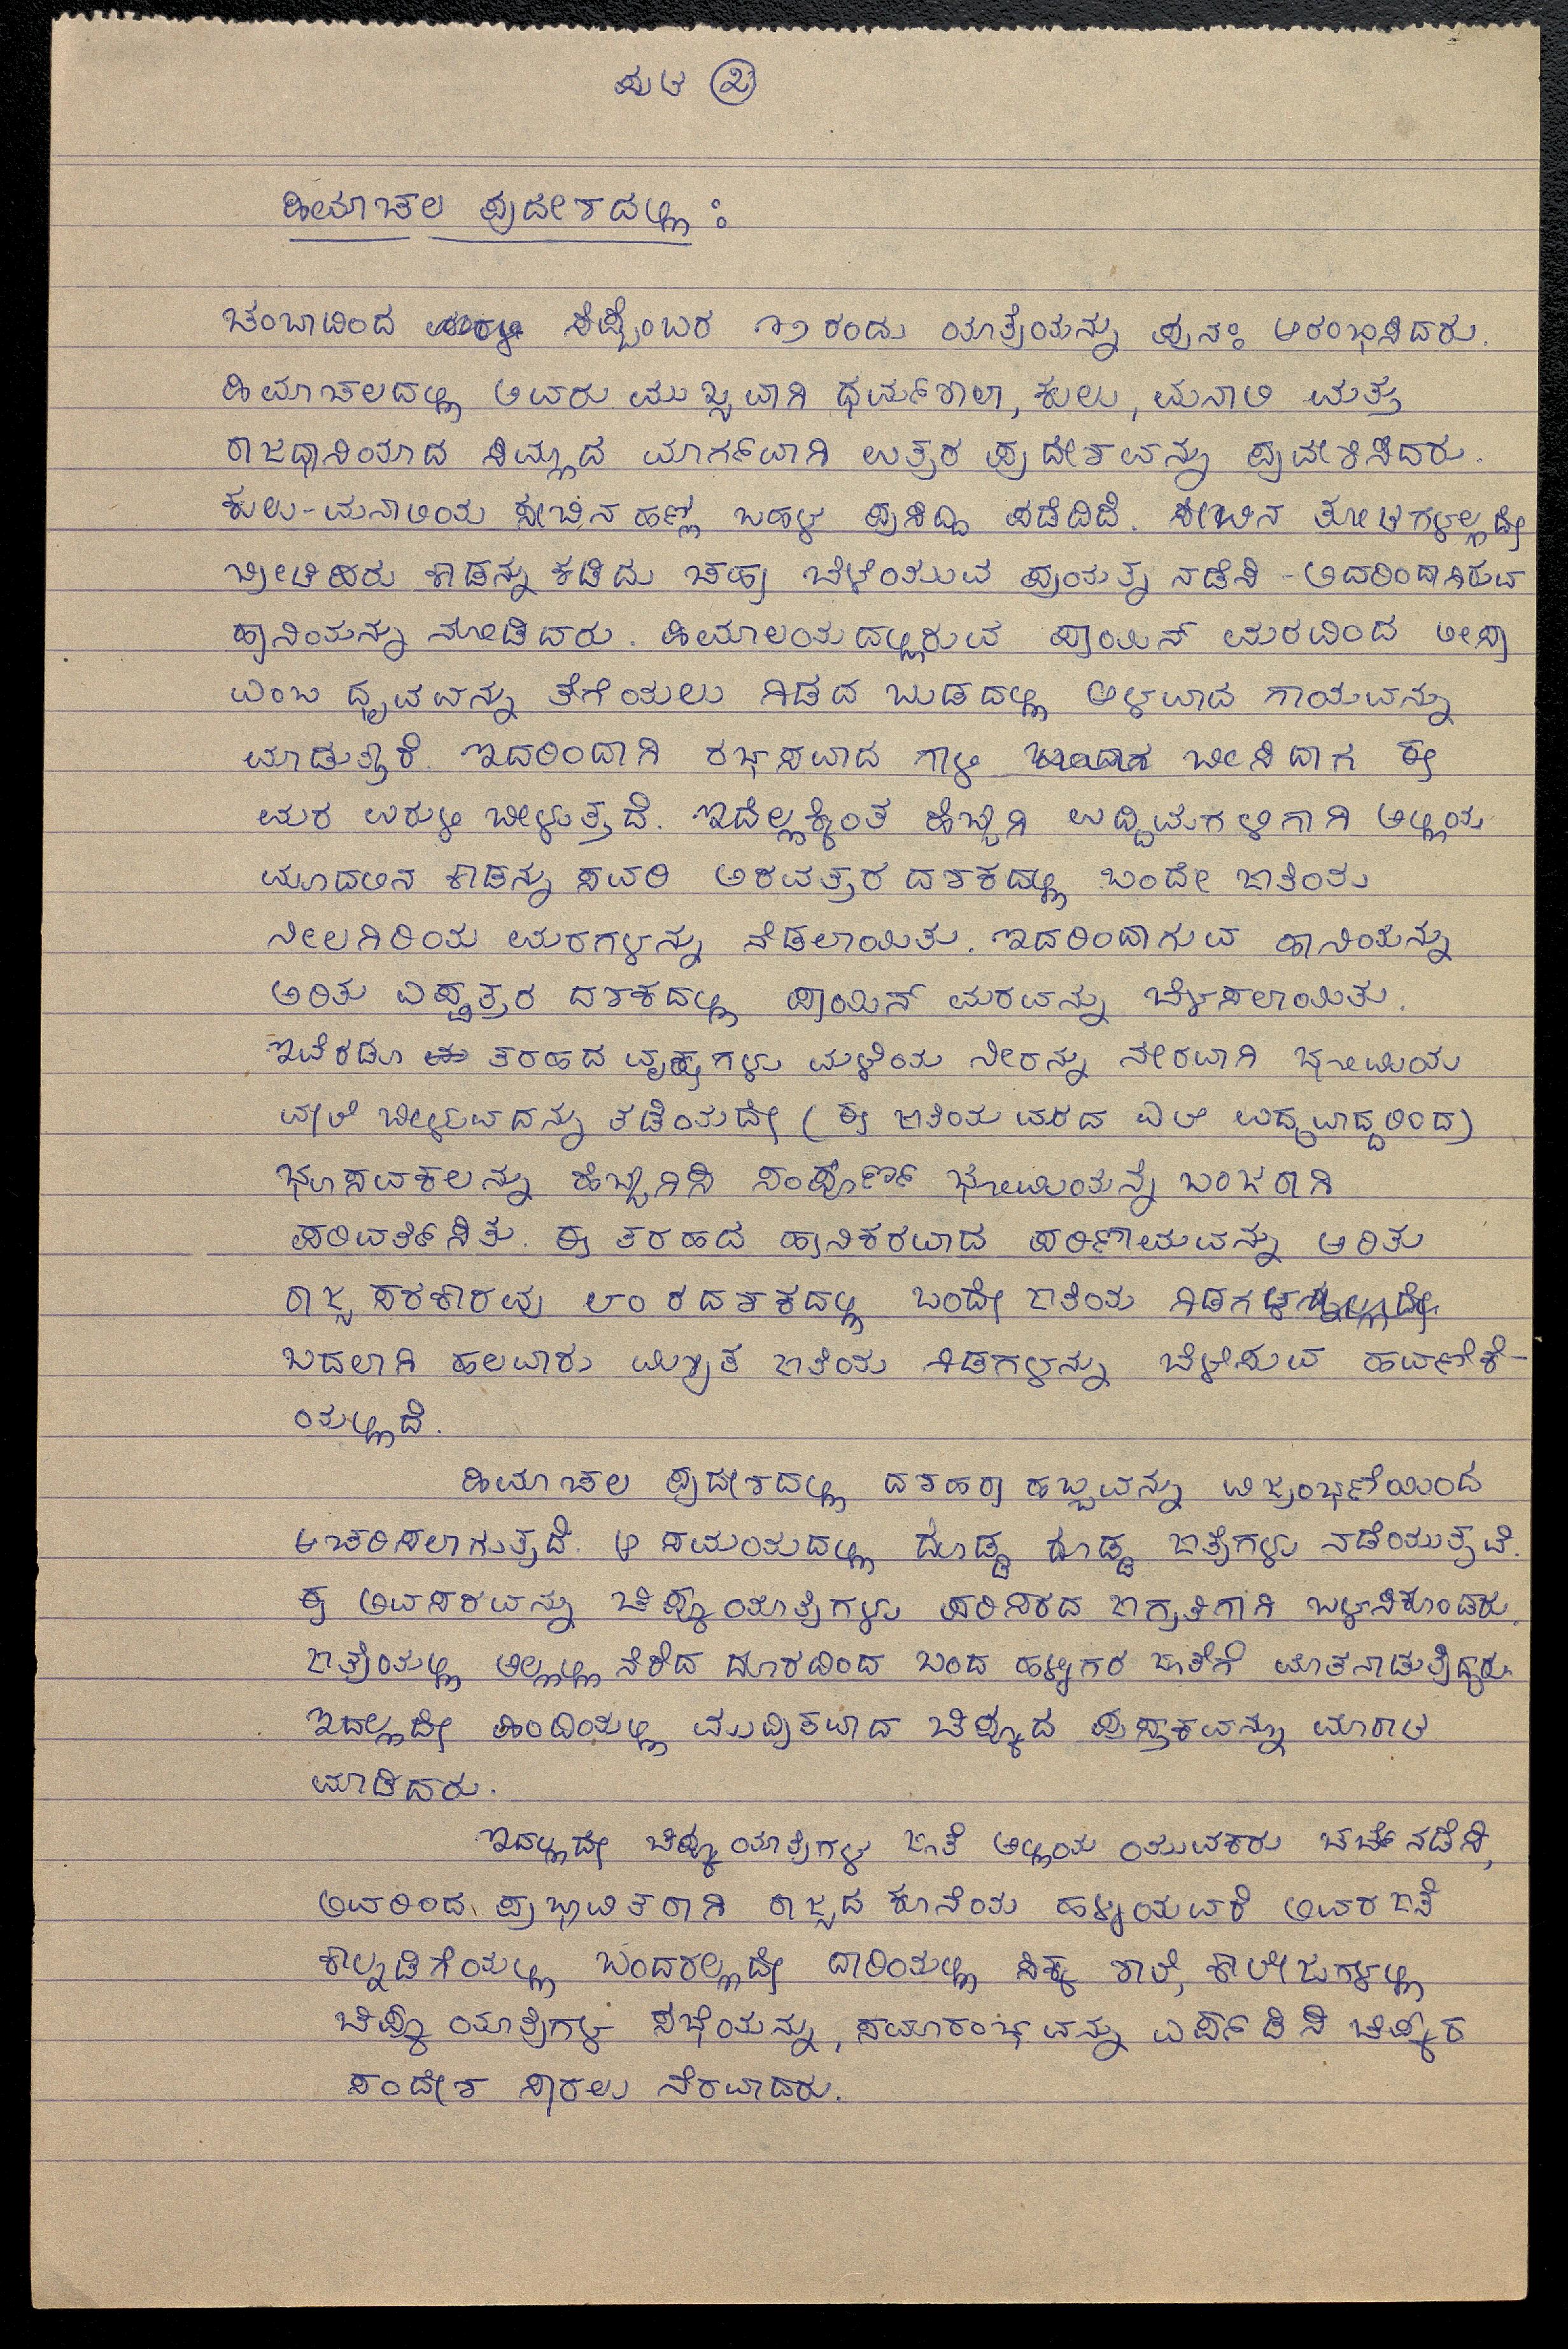 ಪುಟ ೨
ಹಿಮಾಚಲ ಪ್ರದೇಶದಲ್ಲಿ :
ಚಂಬಾದಿಂದ ಸೆಪ್ಟೆಂಬರ ೧೨ ರಂದು ಯಾತ್ರೆಯನ್ನು ಪುನಃ ಆರಂಭಿಸಿದರು.
ಹಿಮಾಚಲದಲ್ಲಿ ಅವರು ಮುಖ್ಯವಾಗಿ ಧರ್ಮಶಾಲಾ, ಕುಲು, ಮನಾಲಿ ಮತ್ತು
ರಾಜಧಾನಿಯಾದ ಸಿಮ್ಲಾದ ಮಾರ್ಗವಾಗಿ ಉತ್ತರ ಪ್ರದೇಶವನ್ನು ಪ್ರವೇಶಿಸಿದರು.
ಕುಲು-ಮನಾಲಿಯ ಸೇಬಿನ ಹಣ್ಣು ಬಹಳ ಪ್ರಸಿದ್ಧಿ ಪಡೆದಿದೆ. ಸೇಬಿನ ತೋಟಗಳಲ್ಲದೇ
ಬ್ರೀಟಿಷರು ಕಾಡನ್ನು ಕಡಿದು ಚಹಾ ಬೆಳೆಯುವ ಪ್ರಯತ್ನ ನಡೆಸಿ - ಅದರಿಂದಾಗಿರುವ
ಹಾನಿಯನ್ನು ನೋಡಿದರು. ಹಿಮಾಲಯದಲ್ಲಿರುವ ಪಾಯಿನ್ ಮರದಿಂದ ಲೀಸಾ
ಎಂಬ ದ್ರವವನ್ನು ತೆಗೆಯಲು ಗಿಡದ ಬುಡದಲ್ಲಿ ಆಳವಾದ ಗಾಯವನ್ನು
ಮಾಡುತ್ತಾರೆ. ಇದರಿಂದಾಗಿ ರಭಸವಾದ ಗಾಳಿ ಬೀಸಿದಾಗ ಈ
ಮರ ಉರುಳಿ ಬೀಳುತ್ತದೆ. ಇದೆಲ್ಲಕ್ಕಿಂತ ಹೆಚ್ಚಾಗಿ ಉದ್ದಿಮೆಗಳಿಗಾಗಿ ಅಲ್ಲಿಯ
ಮೂದಲಿನ ಕಾಡನ್ನು ಸವರಿ ಅರವತ್ತರ ದಶಕದಲ್ಲಿ ಒಂದೇ ಜಾತಿಯ
ನೀಲಗಿರಿಯ ಮರಗಳನ್ನು ನೆಡಲಾಯಿತು. ಇದರಿಂದಾಗುವ ಹಾನಿಯನ್ನು
ಅರಿತು ಎಪ್ಪತ್ತರ ದಶಕದಲ್ಲಿ ಪಾಯಿನ್ ಮರವನ್ನು ಬೆಳಸಲಾಯಿತು.
ಇವೆರಡೂ ತರಹದ ವೃಕ್ಷಗಳು ಮಳೆಯ ನೀರನ್ನು ನೇರವಾಗಿ ಭೂಮಿಯ
ಮೇಲೆ ಬೀಳುವದನ್ನು ತಡೆಯದೇ (ಈ ಜಾತಿಯ ಮರದ ಎಲೆ ಉದ್ದವಾದ್ದರಿಂದ)
ಭೂಸವಕಲನ್ನು ಹೆಚ್ಚಿಗಿಸಿ ಸಂಪೂರ್ಣ ಭೂಮಿಯನ್ನೆ ಬಂಜರಾಗಿ
ಪರಿವರ್ತಿಸಿತು. ಈ ತರಹದ ಹಾನಿಕರವಾದ ಪರಿಣಾಮವನ್ನು ಅರಿತು
ರಾಜ್ಯ ಸರಕಾರವು ೮೦ ರ ದಶಕದಲ್ಲಿ ಒಂದೇ ಜಾತಿಯ
ಬದಲಾಗಿ ಹಲವಾರು ಮಿಶ್ರಿತ ಜಾತಿಯ ಗಿಡಗಳನ್ನು ಬೆಳೆಸುವ ಹವಣಿಕೆ-
ಯಲ್ಲಿದೆ.
ಹಿಮಾಚಲ ಪ್ರದೇಶದಲ್ಲಿ ದಶಹರಾ ಹಬ್ಬವನ್ನು ವಿಜ್ರಂಭಣೆಯಿಂದ
ಆಚರಿಸಲಾಗುತ್ತದೆ. ಆ ಸಮಯದಲ್ಲಿ ದೊಡ್ಡ ದೊಡ್ಡ ಜಾತ್ರೆಗಳು ನಡೆಯುತ್ತವೆ.
ಈ ಅವಸರವನ್ನು ಚಿಪ್ಕೊಯಾತ್ರಿಗಳು ಪರಿಸರದ ಜಾಗ್ರತಿಗಾಗಿ ಬಳಸಿಕೊಂಡರು.
ಜಾತ್ರೆಯಲ್ಲಿ ಅಲ್ಲಲ್ಲಿ ನೆರೆದ ದೂರದಿಂದ ಬಂದ ಹಳ್ಳಿಗರ ಜೊತೆಗೆ ಮಾತನಾಡುತ್ತಿದ್ದರು.
ಇದಲ್ಲದೇ ಹಿಂದಿಯಲ್ಲಿ ಮುದ್ರಿತವಾದ ಚಿಪ್ಕೊದ ಪುಸ್ತಕವನ್ನು ಮಾರಾಟ
ಮಾಡಿದರು.
ಇದಲ್ಲದೇ ಚಿಪ್ಕೊಯಾತ್ರಿಗಳ ಜೊತೆ ಅಲ್ಲಿಯ ಯುವಕರು ಚರ್ಚೆ ನಡೆಸಿ,
ಅವರಿಂದ ಪ್ರಭಾವಿತರಾಗಿ ರಾಜ್ಯದ ಕೂನೆಯ ಹಳ್ಳಿಯವರೆ ಅವರ ಜೊತೆ
ಕಾಲ್ನಡಿಗೆಯಲ್ಲಿ ಬಂದರಲ್ಲದೇ ದಾರಿಯಲ್ಲಿ ಸಿಕ್ಕ ಶಾಲೆ, ಕಾಲೇಜುಗಳಲ್ಲಿ
ಚಿಪ್ಕೊ ಯಾತ್ರಿಗಳ ಸಭೆಯನ್ನು, ಸಮಾರಂಭವನ್ನು ಏರ್ಪಡಿಸಿ ಚಿಪ್ಕೊರ
ಸಂದೇಶ ಸಾರಲು ನೆರವಾದರು.